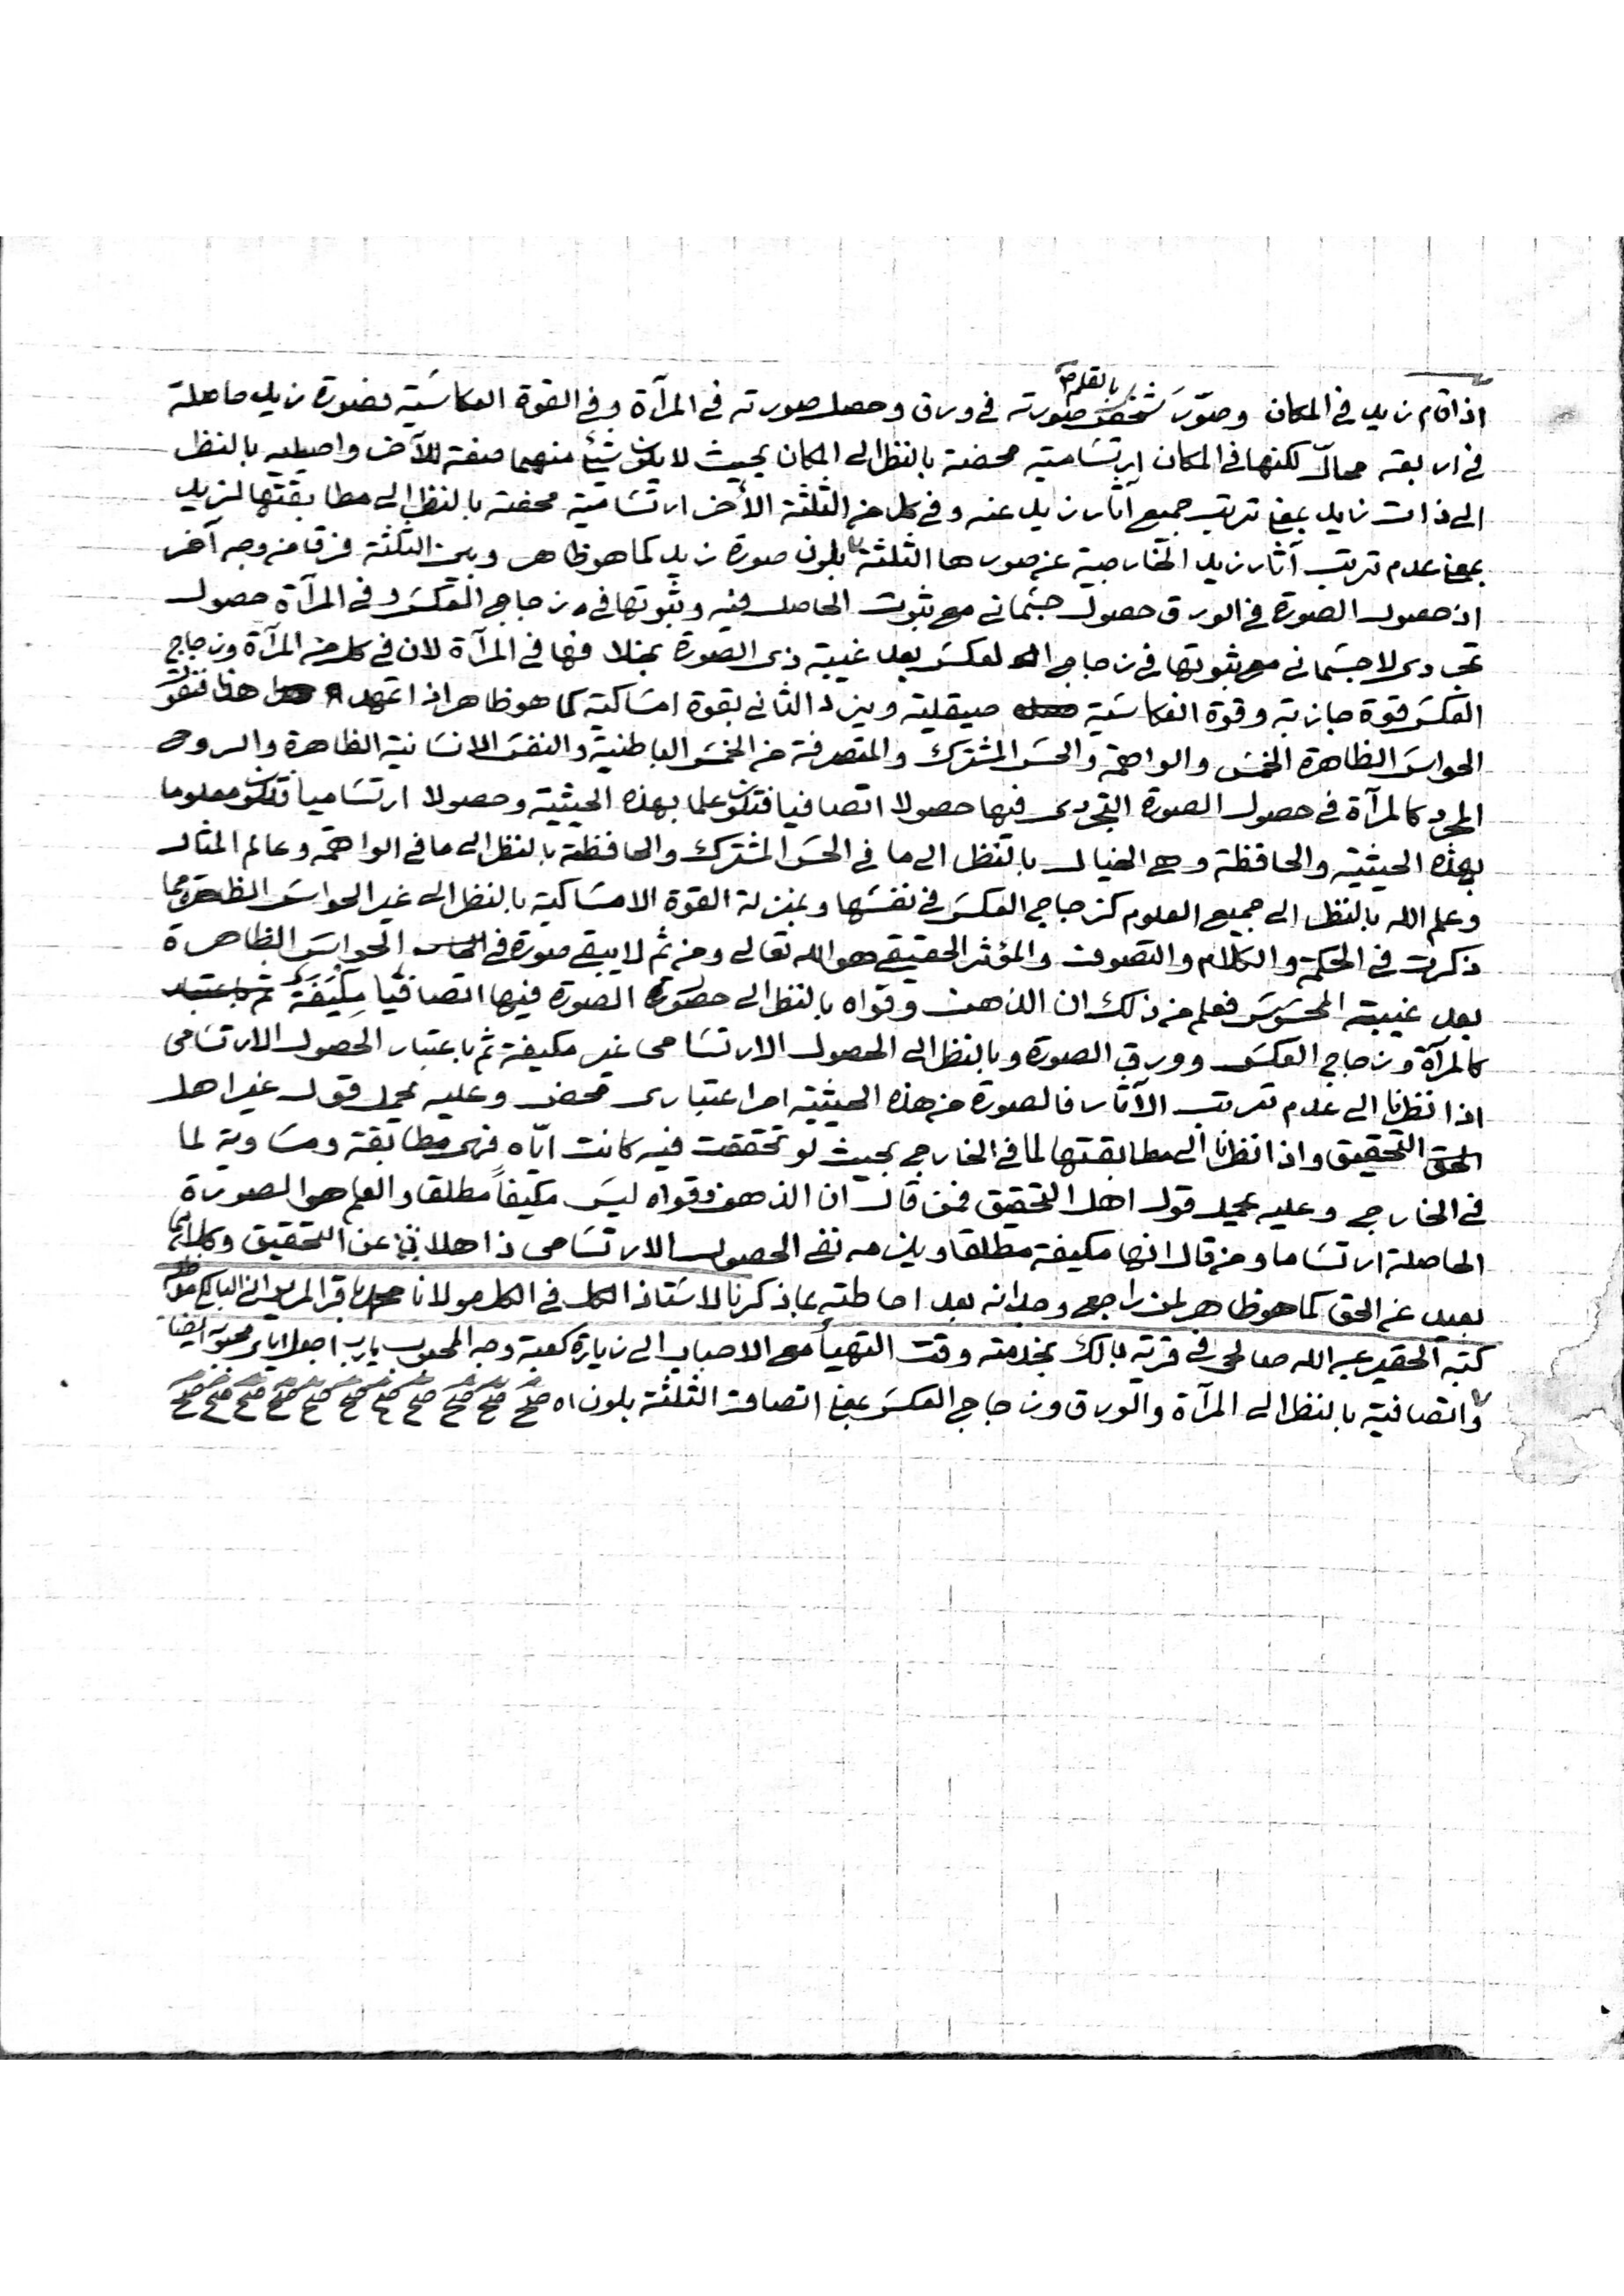 بالقلم
اذا قام زيد في المكان وصوّر شخص صورته في ورق وحصل صورته في المرآة وفي القوة العكاسية فصورة زيد حاصلة
في اربعة محالّ لكنها في المكان ارتسامية محضة بالنظر الى المكان بحيث لا يكون شيئ منهما صفة للآخر واصيلية بالنظر
الى ذات زيد بمعنى ترتب جميع آثار زيد عنه وفي كل من الثلثة الأخر ارتسامية محضة بالنظر الى مطابقتها لزيد
بمعنى عدم ترتب آثار زيد الخارجية عن صورها الثلثة بلون صورة زيد كما هو ظاهر وبين الثلثة فرق من وجه آخر
اذ حصول الصورة في الورق حصول جسماني مع ثبوت الحاصل فيه وثبوتها في زجاجي العكس وفي المرآة حصول
تجردى لا جسماني مع ثبوتها في زجاجي العكس بعد غيبة ذى الصورة بخلافها في المرآة لان في كل من المرآة وزجاجي
العكس قوة جاذبة وقوة انعكاسية صيقلية ويزيد الثاني بقوة امساكية كما هو ظاهر اذا تمهد هذا فنقول
الحواس الظاهرة الخمس والواهمة والحس المشترك والمتصرفة من الخمس الباطنية والنفس الانسانية الظاهرة والروح
المجرد كالمرآة في حصول الصورة التجردى فيها حصولا اتصافيا فتكون علما بهذه الحيثية وحصولا ارتساميا فتكون معلوما
بهذه الحيثية والحافظة وهي الخيال بالنظر الى ما في الحس المشترك والحافظة بالنظر الى ما في الواهمة وعالم المثال
وعلم الله بالنظر الى جميع العلوم كزجاجي العكس في نفسها وبمنزلة القوة الامساكية بالنظر الى غير الحواس الظاهرة مما
ذكرت في الحكمة والكلام والتصوف والمؤثر الحقيقي هو الله تعالى ومن ثم لا يبقى صورة في الحواس الظاهرة
بعد غيبة المحسوس فعلم من ذلك ان الذهن وقواه بالنظر الى حصول الصورة فيها اتصافيا مكيفة ثم باعتبار
كالمرآة وزجاجي العكس وورق الصورة وبالنظر الى الحصول الارتسامى غير مكيفة ثم باعتبار الحصول الارتسامى
اذا نظرنا الى عدم ترتب الآثار فالصورة من هذه الحيثية امر اعتبارى محض وعليه يحمل قول غير اهل
الحق التحقيق واذا نظرنا الى مطابقتها لما في الخارج بحيث لو تحققت فيه كانت اياه فهى مطابقة ومساوية لما
في الخارج وعليه يحمل قول اهل التحقيق فمن قال ان الذهن وقواه ليس مكيفاً مطلقا والعلم هو الصورة
الحاصلة ارتساما ومن قال انها مكيفة مطلقا ويلزمه نفى الحصول الارتسامى ذاهلان عن التحقيق وكلاهما
بعيد عن الحق كما هو ظاهر لمن راجع وجدانه بعد احاطته بما ذكرنا لاستاذ الكل في الكل مولانا محمد باقر المدرس البالكي
كتبه الحقير عبد الله صالحى في قرية بالك بخدمته وقت التهيأ مع الاحباب الى زيارة كعبة وجه المحبوب يارب اجعل
واتصافية بالنظر الى المرآة والورق وزجاجي العكس بمعنى اتصاف الثلثة بلون اه صح صح صح صح صح صح صح صح صح صح صح صح